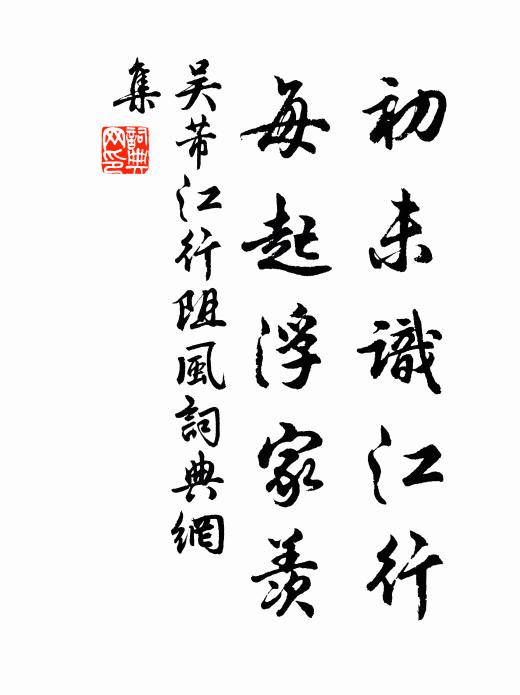 初未識江行
每起浮家羨
吴芾江行阻風詞典網
集
詞典網印